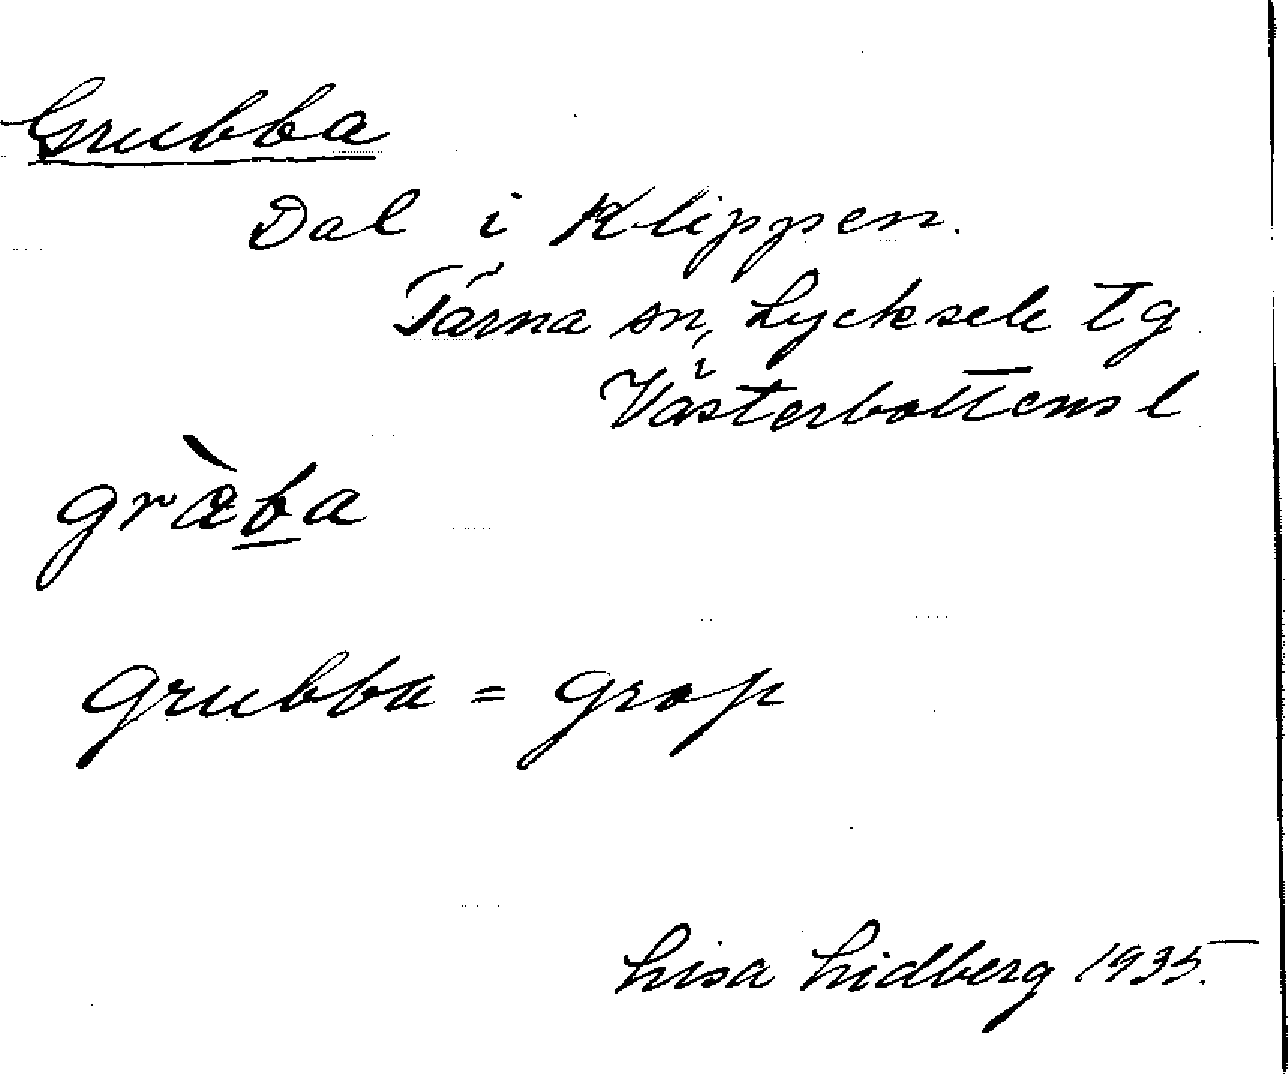 Grubba
Dal i Klippen.
Tärna sn, Lycksele tg
Västerbottens l
græ̀b̲a
grubba = grop
Lisa Lidberg 1935.